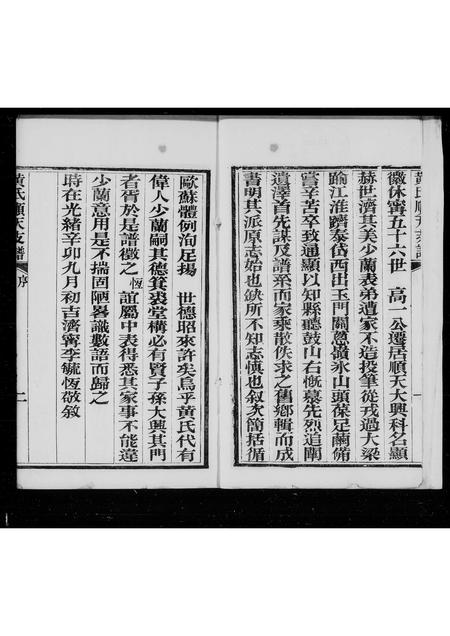 黃氏順天支譜
一
徽休寧五十六世　高一公遷居順天大興科名顯
赫世濟其美少蘭表弟遭家不造投筆從戎過大梁
踰江淮躋泰岱西出玉門關憊嶺氷山頭葆足繭備
嘗辛苦卒致通顯以知縣聽鼓山右慨慕先烈追闡
遺澤首先謀及譜系而家乘散佚求之舊鄉輯而成
書明其派原志始也缺所不知志慎也叙次簡括循
歐蘇體例洵足揚　世德昭來許矣烏乎黃氏代有
偉人少蘭嗣其德箕裘堂構必有賢子孫大興其門
者胥於是譜徵之恆誼屬中表得悉其家事不能違
少蘭意用是不揣固陋畧識數語而歸之
時在光緒辛卯九月初吉濟寧李毓恆敬敘
黃氏順天支譜
序
二